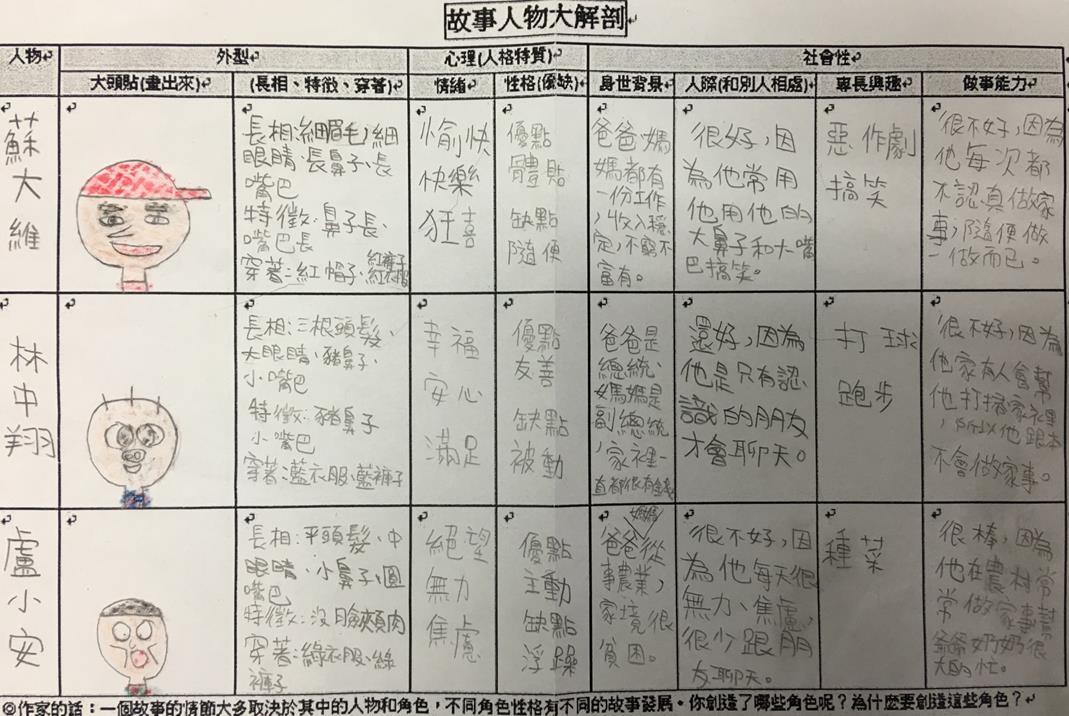 故事人物大解剖
人物
外型
心理(人格特質)
社會性
大頭貼(畫出來)
(長相、特徵、穿著)
情緒
性格(優缺)
身世背景
人際(和別人相處)
專長興趣
做事能力
蘇
大
維
長相:細眉毛,細
眼睛、長鼻子、長
嘴巴
特徵:鼻子長、
嘴巴長
穿著:紅帽子、紅衣服
紅褲子
愉快
快樂
狂喜
優點
體貼
缺點
隨便
爸爸、媽
媽都有
一份工作
,收入穩
定,不窮不
富有。
很好,因
為他常用
他用他的
大鼻子和大嘴
巴搞笑。
惡作劇
搞笑
很不好,因為
他每次都
不認真做家
事,隨便做
一做而已。
林
中
翔
長相:三根頭髮、
大眼睛、豬鼻子、
小嘴巴
特徵:豬鼻子
小嘴巴
穿著:藍衣服、藍褲子
幸福
安心
滿足
優點
友善
缺點
被動
爸爸是
總統、
媽媽是
副總統
,家裡一
直都很有金錢
還好,因為
他是只有認
識的朋友
才會聊天。
打球
跑步
很不好,因為
他家有人會幫
他打掃家裡
,所以他跟本
不會做家事。
盧
小
安
長相:平頭髮、中
眼睛、小鼻子、圓
嘴巴
特徵:沒臉頰肉
穿著:綠衣服、綠
褲子
絕望
無力
焦慮
優點
主動
缺點
浮躁
媽媽
爸爸從
事農業,
家境很
貧困。
很不好,因
為他每天很
無力、焦慮,
很少跟朋
友聊天。
種菜
很棒,因為
他在農村常
常做家事幫
爺爺奶奶很
大的忙。
◎作家的話:一個故事的情節大多取決於其中的人物和角色,不同角色性格有不同的故事發展。你創造了哪些角色呢?為什麼要創造這些角色?